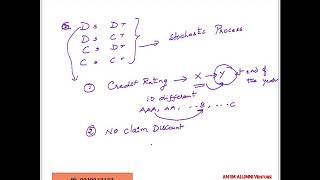 DS DT
DS CT
CS DT
CS CT
Stochastic Process
① Credit Rating → X → Y → end of the year
10 different
AAA, AA, ... B, ... C
② No Claim Discount
AN IIM ALUMNI VENTURE